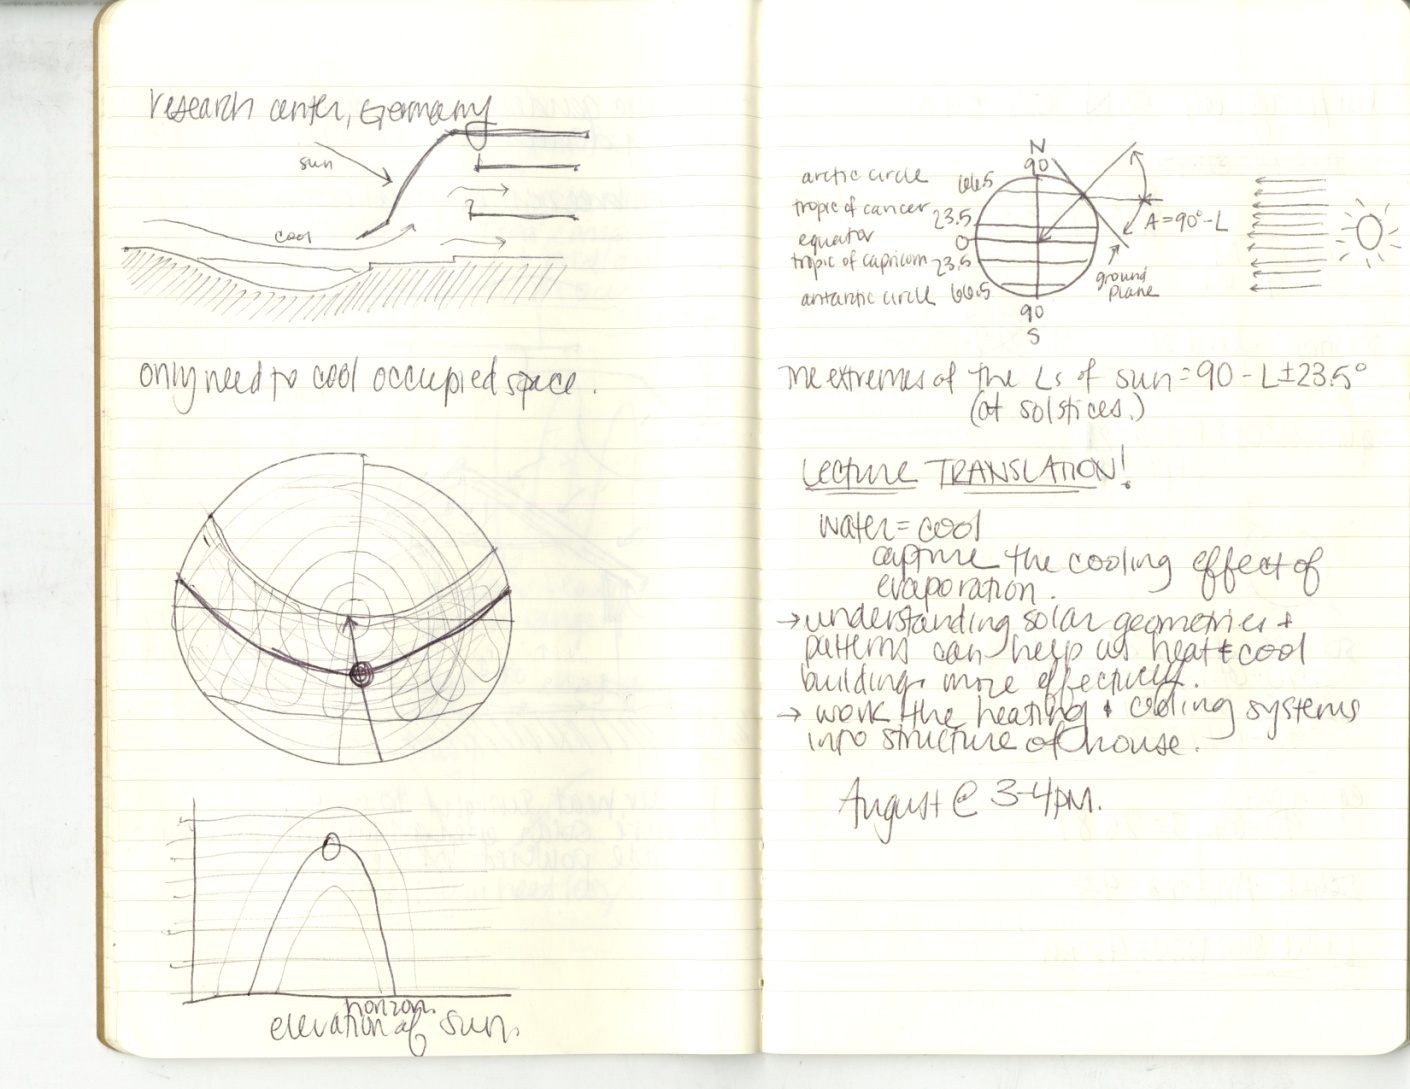 research center, Germany
sun
cool
only need to cool occupied space.
horizon.
elevation of sun.
N
90
arctic circle 66.5
tropic of cancer 23.5
equator 0
tropic of capricorn 23.5
antarctic circle 66.5
90
S
A = 90° - L
ground
plane
The extremes of the Ls of sun = 90 - L ± 23.5°
(at solstices.)
Lecture TRANSLATION!
water = cool
capture the cooling effect of
evaporation.
→ understanding solar geometries +
patterns can help us heat & cool
buildings more effectively.
→ work the heating & cooling systems
into structure of house.
August @ 3-4PM.